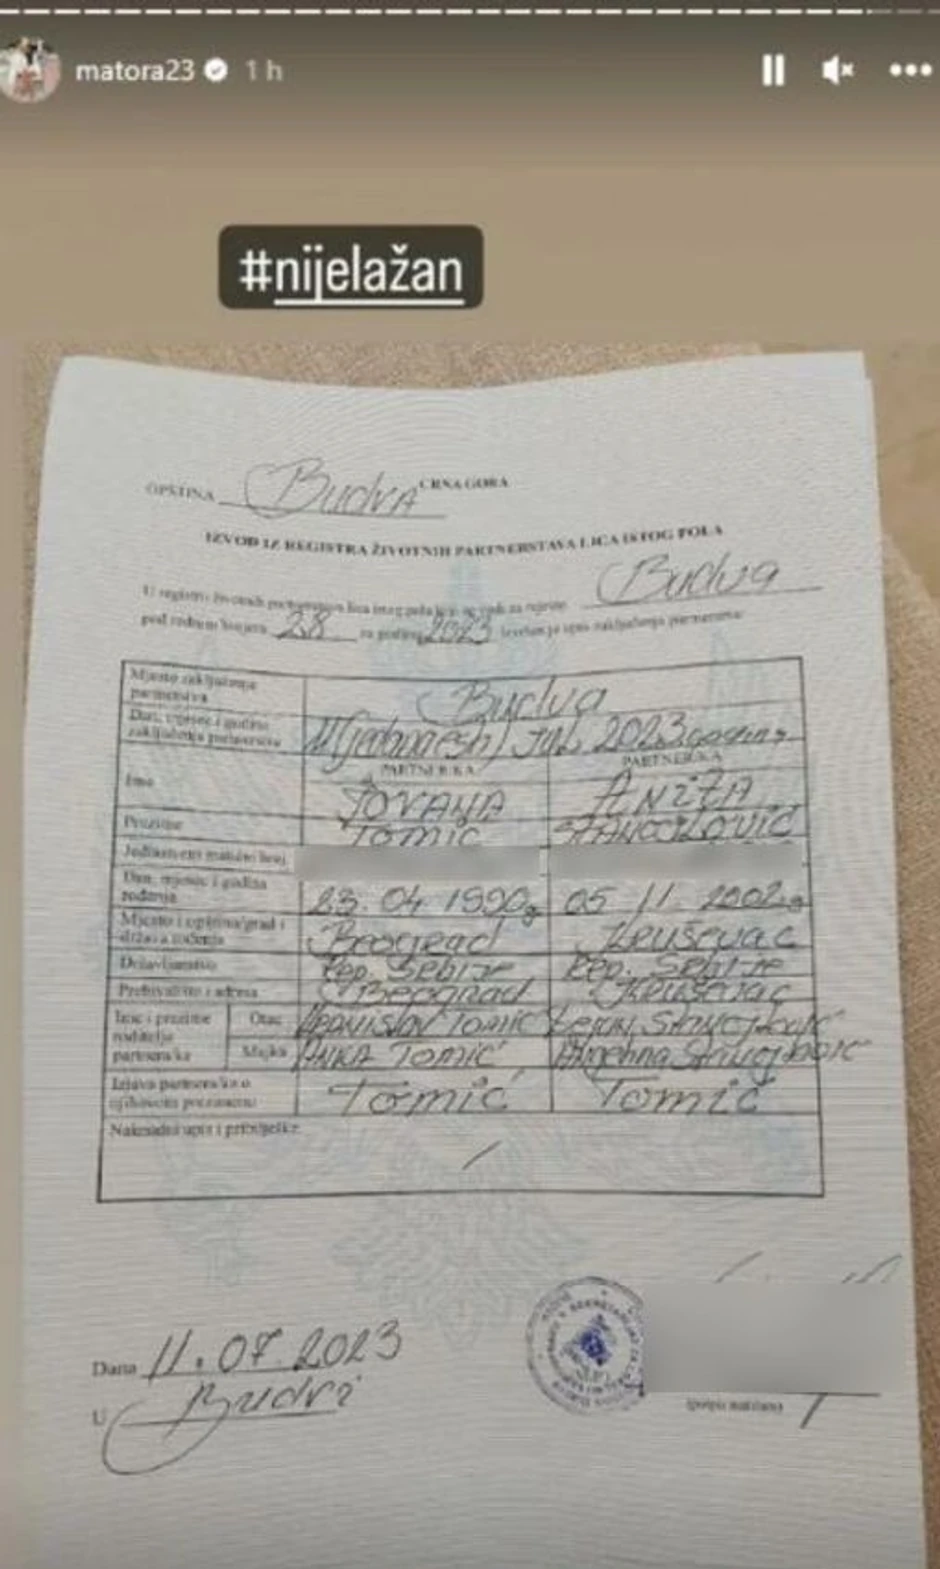 matora23 1 h
#nijelažan
CRNA GORA
OPŠTINA Budva
IZVOD IZ REGISTRA ŽIVOTNIH PARTNERSTAVA LICA ISTOG POLA
U registru životnih partnerstava lica istog pola koji se vodi za mjesto Budva
pod rednim brojem 28 za godinu 2023 izvršen je upis zaključenja partnerstva:
Mjesto zaključenja partnerstva Budva
Dan, mjesec i godina zaključenja partnerstva 11 (jedanaesti) jul 2023. godine
PARTNER/KA PARTNER/KA
Ime JOVANA ANITA
Prezime TOMIĆ STANOJLOVIĆ
Jedinstveni matični broj
Dan, mjesec i godina rođenja 23. 04 1990g 05 11. 2002.g
Mjesto i opština/grad i država rođenja Beograd Kruševac
Državljanstvo Rep. Srbije Rep. Srbije
Prebivalište i adresa Beograd Kruševac
Ime i prezime roditelja partnera/ke
Otac TOMIĆ
Majka ANKA TOMIĆ
Izjava partnera/ke o njihovom prezimenu Tomić Tomić
Naknadni upis i pribilješke:
Dana 11.07.2023
U Budvi
(potpis matičara)